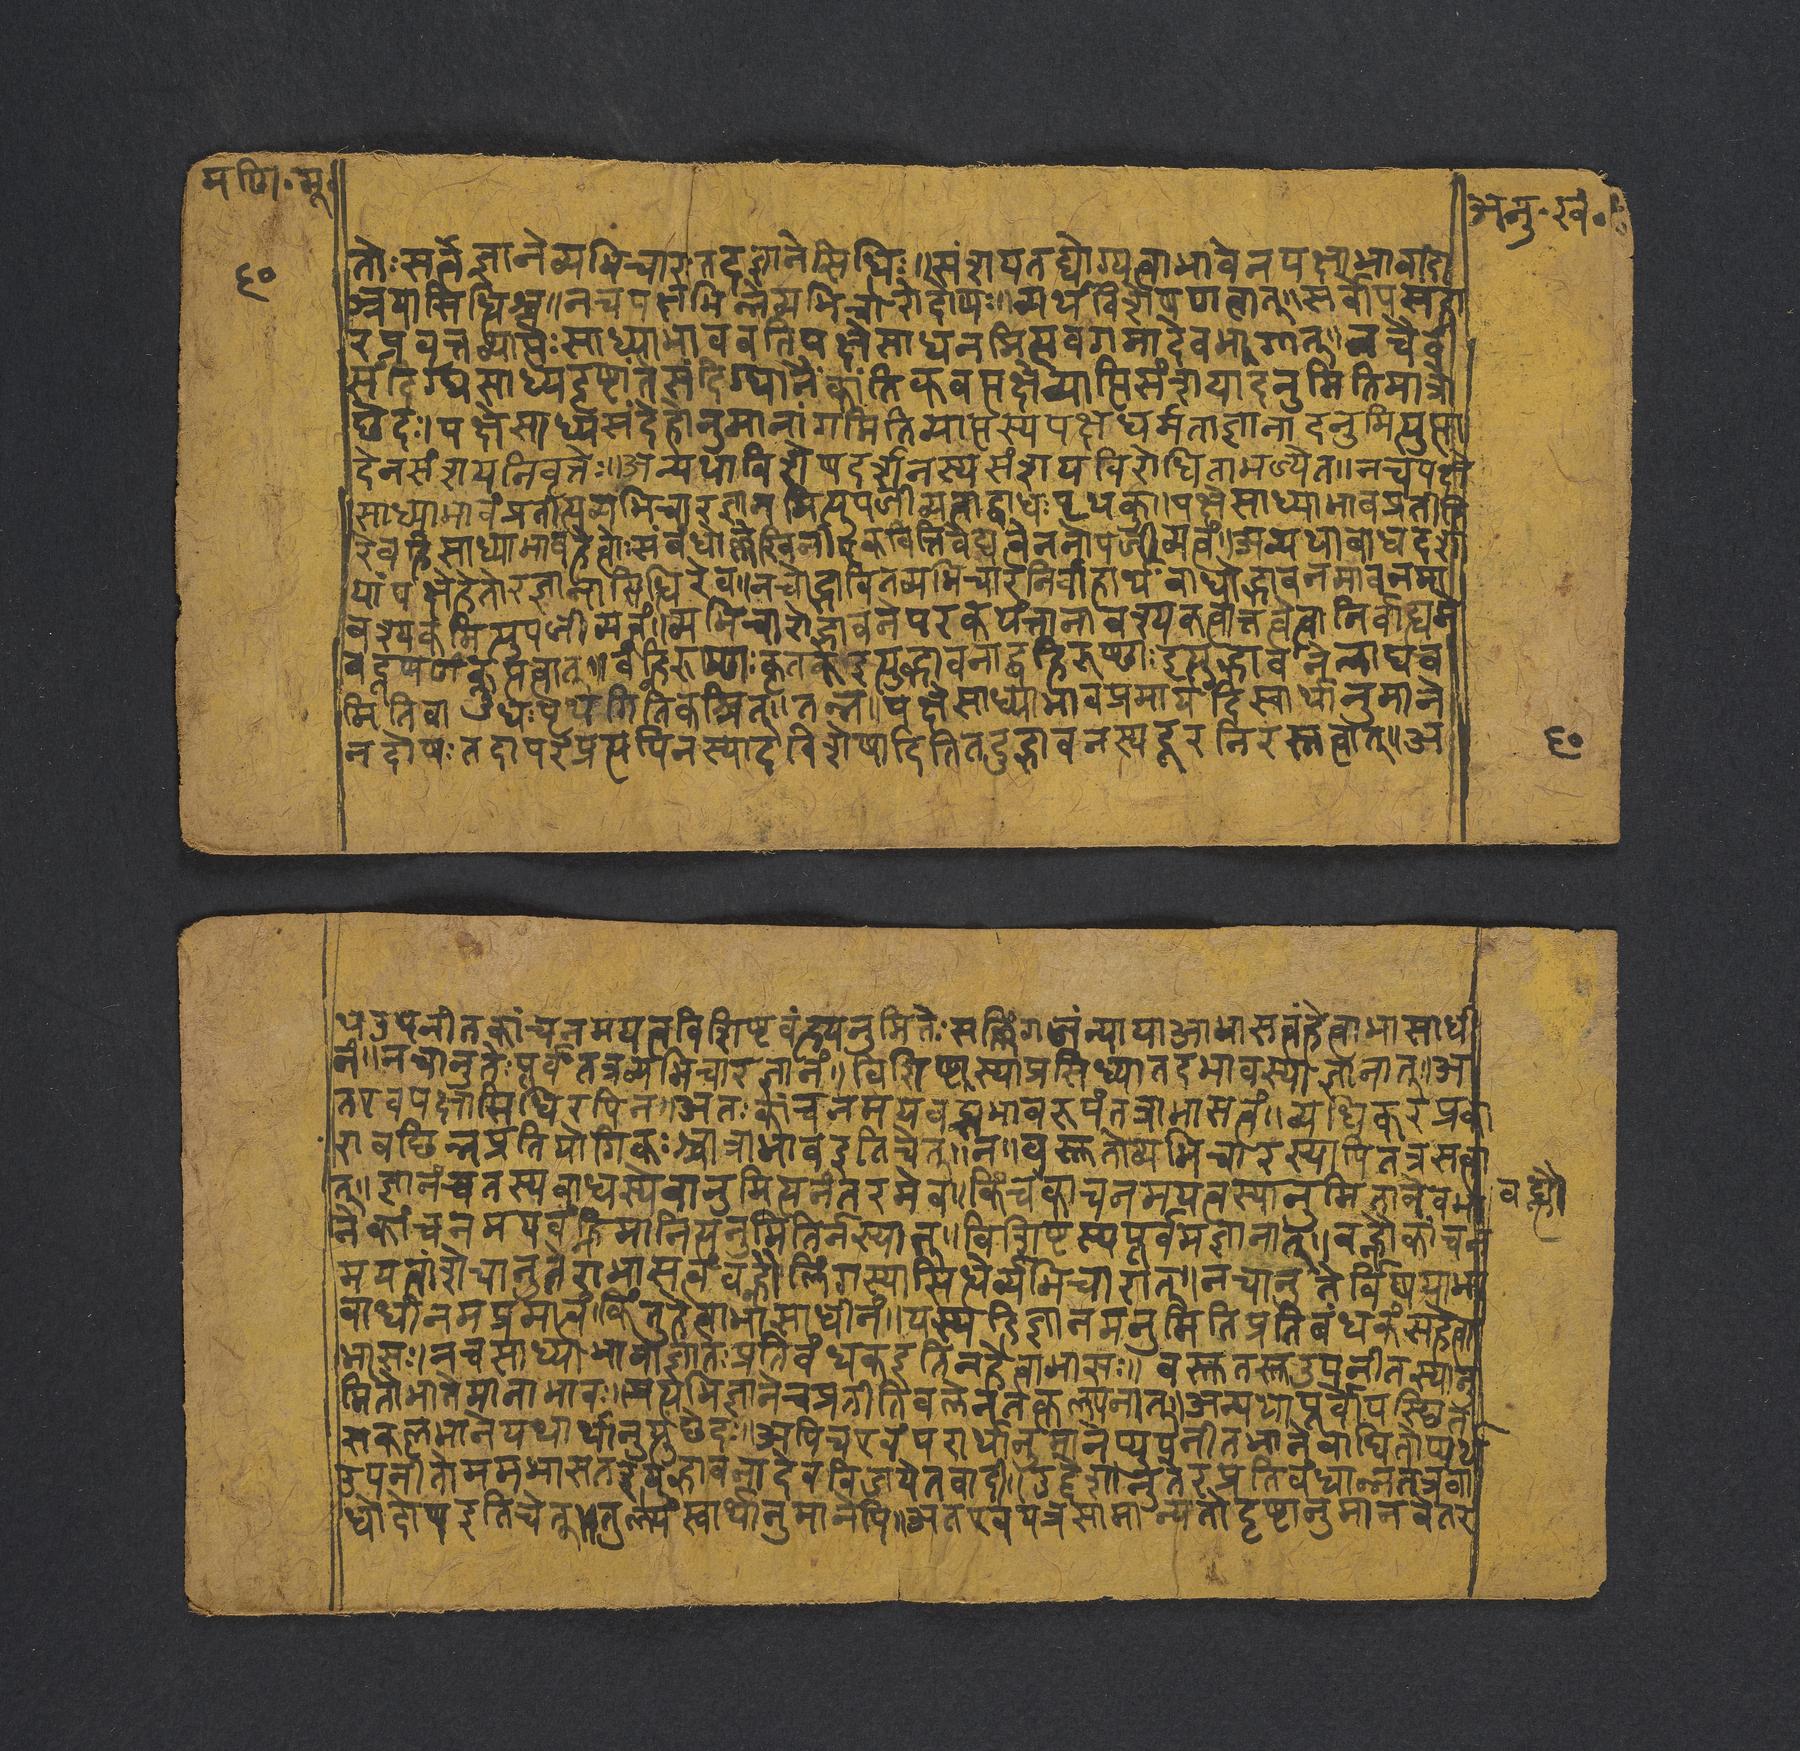 मणि॰मू॰
अनु॰खं॰
६०
तोः सत्त्वे ज्ञाने व्यभिचारः तदज्ञाने सिधिः॥ संशयतद्योग्यत्वाभावेन पक्षाभावादा
श्रयासिधिश्च॥ न च पक्षभिन्ने व्यभिचारो दोषः॥ व्यर्थविशेषणत्वात्॥ सर्वोपसंहा
रप्रवृत्तव्याप्तेः साध्याभाववति पक्षे साधनमित्यवगमादेव भंगात्॥ न चैवं
संदिग्धसाध्यदृष्टांतसंदिग्धानैकांतिकवत्पक्षे व्याप्तिसंशयादनुमितिमात्रो
छेदः। पक्षे साध्यसंदेहोनुमानांगमिति व्याप्तस्य पक्षधर्मताज्ञानादनुमित्युत्पा
देन संशयनिवृत्तेः॥ अन्यथा विशेषदर्शनस्य संशयविरोधिता भज्येत॥ न च पक्षे
साध्याभावं प्रतीत्य व्यभिचारज्ञानमित्युपजीव्यत्वाद्बाधः पृथक्। पक्षे साध्याभावप्रतीति
रेव हि साध्याभावहेत्वोः संबंधोल्लेखिनीत्येकवित्तिवेद्यत्वेन नोपजीव्यत्वं। अन्यथा बाधदशा
यां पक्षे हेतोरज्ञानासिधिरेव॥ न चोद्भावितव्यभिचारनिर्वाहार्थं बाधोद्भावनमावश्यमा
वश्यकमित्युपजीव्यत्वं॥ व्यभिचारोद्भावने परकथंतानावश्यकत्वात्तत्त्वेवा निर्वाह्यत्वे
वदूषणं क्लृप्तत्वात्॥ वंह्निरुष्णः कृतक इत्युद्भावनाद्वह्निरुष्णः इत्युद्भावने लाघव
मिति बाधः पृथगिति कश्चित्॥ तन्न॥ पक्षे साध्याभावप्रमायां हि स्वार्थानुमाने
न दोषः तदा परं प्रत्यपि न स्यादविशेषादिति तदुद्भावनस्य दूरनिरस्तत्वात्॥ अ
६०
थ उपनीतकांचनमयत्वविशिष्टवंह्न्यनुमितेः सल्लिंगजन्याया आभासत्वं हेत्वाभासाधी
नं॥ न चानुमितेः पूर्वं तत्र व्यभिचारज्ञानं॥ विशिष्टस्याप्रसिध्या तदभावस्याज्ञानात्॥ अ
त एव पक्षासिधिरपि न॥ अतः कांचनमयवह्न्यभावरूपं तत्राभासत्वं॥ व्यधिकरणप्रका
रावच्छिन्नप्रतियोगिकश्चात्राभाव इति चेत्॥ न॥ वस्तुतो व्यभिचारस्यापि तत्र सत्वा
त्॥ ज्ञानं च तस्य बाधस्येवानुमित्यनंतरमेव॥ किं च कांचनमयत्वस्यानुमितावेवभा
वह्नौ
ने कांचनमयवंह्निमानित्यनुमितिर्न स्यात्॥ विशिष्टस्य पूर्वमज्ञानात्॥ वह्नौ कांचन
मयत्वांशे चानुमितेराभासत्वं वह्नौ लिंगस्यासिधेर्व्यभिचारात्॥ न चानुमितेर्विषयाभा
वाधीनमप्रमात्वं॥ किंतु हेत्वाभासाधीनं॥ यस्य हि ज्ञानमनुमितिप्रतिबंधकं स हेत्वा
भासः॥ न च साध्याभावोज्ञातः प्रतिबंधक इति न हेत्वाभासः॥ वस्तुतस्तु उपनीतस्यानु
मितौ भाने मानाभावः॥ प्रत्यभिज्ञाने च प्रतीतिबलेन तत्कल्पनात्॥ अन्यथा पूर्वोपस्थिते
सकलभाने यथार्थानुमित्युछेदः॥ अपि च एवं परार्थानुमानेप्युपनीतभाने बाधितोप्यर्थ
उपनीतो मम भासत इत्युद्भावनादेव विजयेत वादी॥ उद्देश्यानुमितेरप्रतिबंधान्न तत्र बा
धो दोष इति चेत्॥ तुल्यं स्वार्थानुमानेपि॥ अत एव यत्र सामान्यतोदृष्टानुमानवेतरा